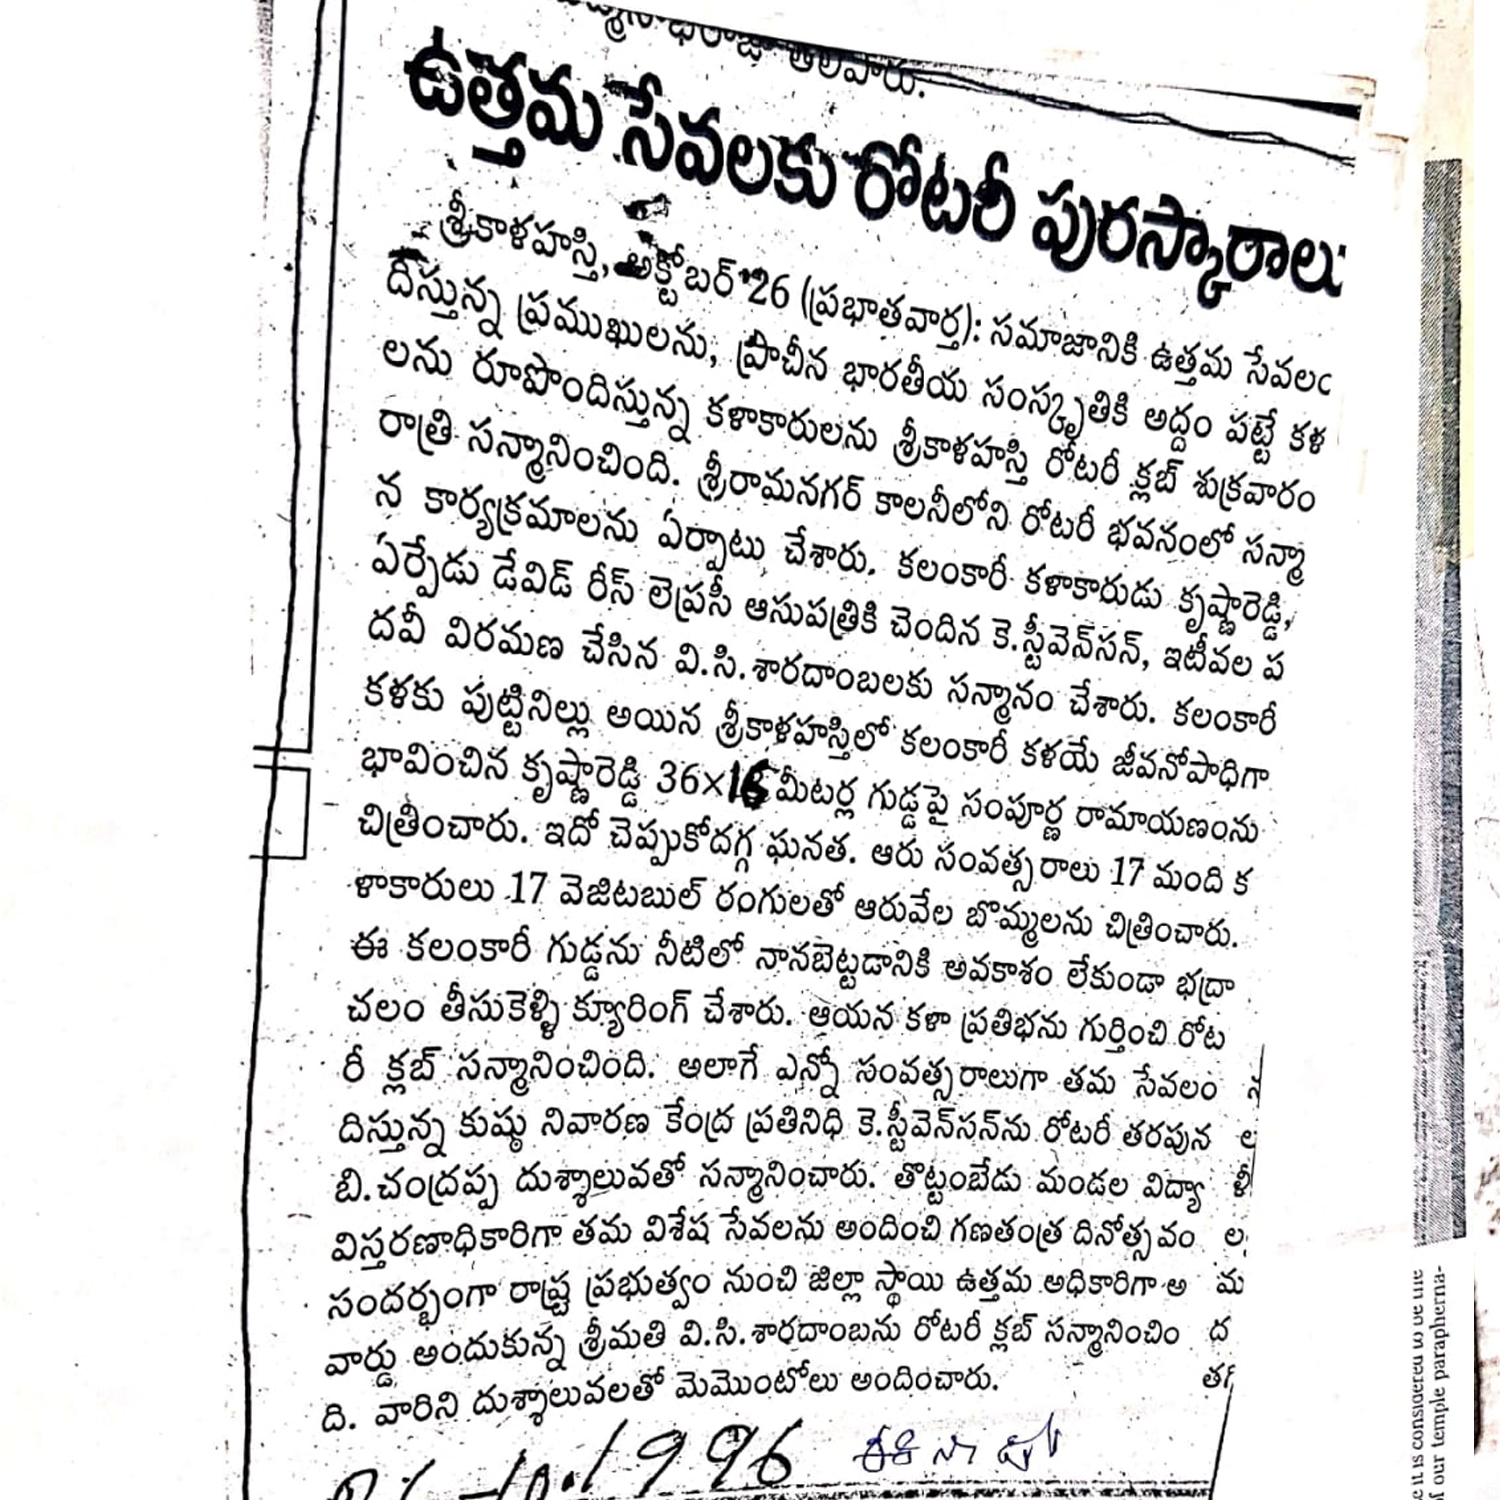 తెలిపారు.
ఉత్తమ సేవలకు రోటరీ పురస్కారాలు
శ్రీకాళహస్తి, అక్టోబర్ 26 (ప్రభాతవార్త): సమాజానికి ఉత్తమ సేవలం
దిస్తున్న ప్రముఖులను, ప్రాచీన భారతీయ సంస్కృతికి అద్దం పట్టే కళ
లను రూపొందిస్తున్న కళాకారులను శ్రీకాళహస్తి రోటరీ క్లబ్ శుక్రవారం
రాత్రి సన్మానించింది. శ్రీరామనగర్ కాలనీలోని రోటరీ భవనంలో సన్మా
న కార్యక్రమాలను ఏర్పాటు చేశారు. కలంకారీ కళాకారుడు కృష్ణారెడ్డి,
ఏర్పేడు డేవిడ్ రీస్ లెప్రసీ ఆసుపత్రికి చెందిన కె.స్టీవెన్‌సన్, ఇటీవల ప
దవీ విరమణ చేసిన వి.సి.శారదాంబలకు సన్మానం చేశారు. కలంకారీ
కళకు పుట్టినిల్లు అయిన శ్రీకాళహస్తిలో కలంకారీ కళయే జీవనోపాధిగా
భావించిన కృష్ణారెడ్డి 36×16 మీటర్ల గుడ్డపై సంపూర్ణ రామాయణంను
చిత్రించారు. ఇదో చెప్పుకోదగ్గ ఘనత. ఆరు సంవత్సరాలు 17 మంది క
ళాకారులు 17 వెజిటబుల్ రంగులతో ఆరువేల బొమ్మలను చిత్రించారు.
ఈ కలంకారీ గుడ్డను నీటిలో నానబెట్టడానికి అవకాశం లేకుండా భద్రా
చలం తీసుకెళ్ళి క్యూరింగ్ చేశారు. ఆయన కళా ప్రతిభను గుర్తించి రోట
రీ క్లబ్ సన్మానించింది. అలాగే ఎన్నో సంవత్సరాలుగా తమ సేవలం
దిస్తున్న కుష్ఠు నివారణ కేంద్ర ప్రతినిధి కె.స్టీవెన్‌సన్‌ను రోటరీ తరపున
బి.చంద్రప్ప దుశ్శాలువతో సన్మానించారు. తొట్టంబేడు మండల విద్యా
విస్తరణాధికారిగా తమ విశేష సేవలను అందించి గణతంత్ర దినోత్సవం
సందర్భంగా రాష్ట్ర ప్రభుత్వం నుంచి జిల్లా స్థాయి ఉత్తమ అధికారిగా అ
వార్డు అందుకున్న శ్రీమతి వి.సి.శారదాంబను రోటరీ క్లబ్ సన్మానించిం
ది. వారిని దుశ్శాలువలతో మెమొంటోలు అందించారు.
10.1996
it is considered to be the
of our temple parapherna-